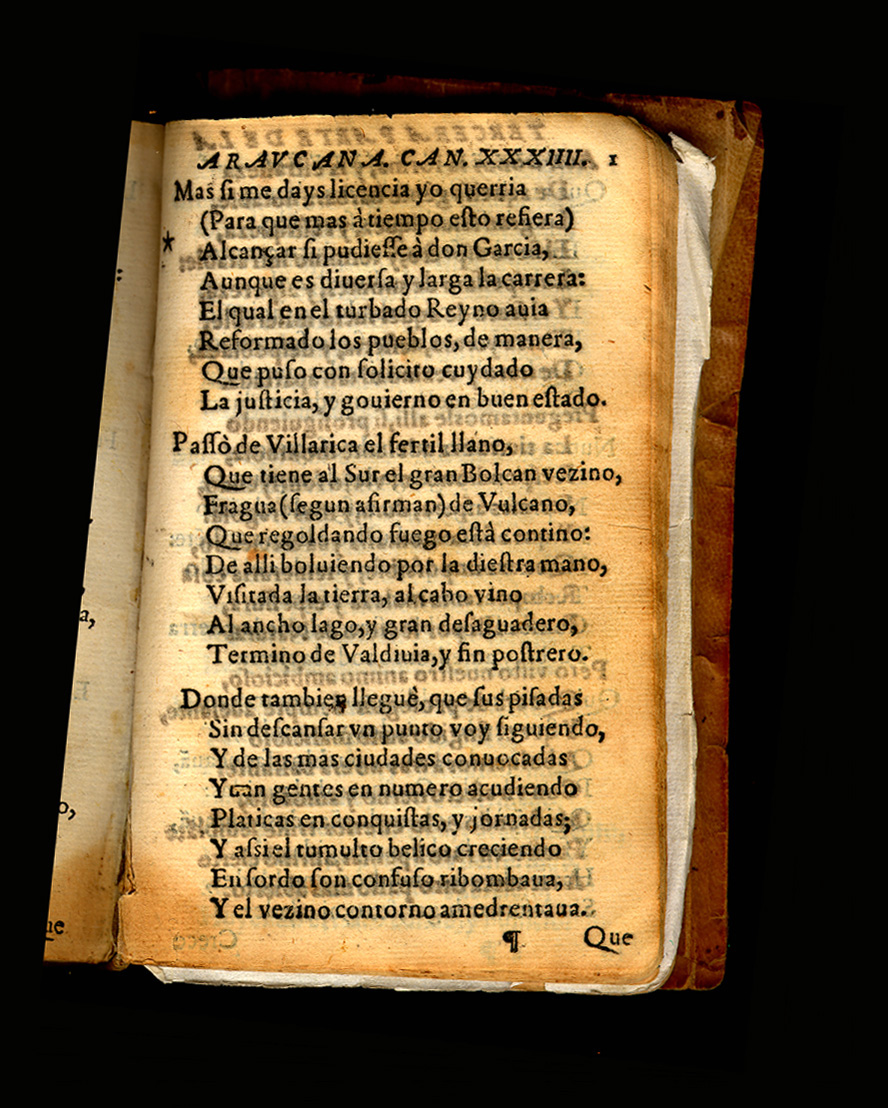 ARAVCANA. CAN. XXXIIII. 1
Mas si me days licencia yo querria
(Para que mas à tiempo esto refiera)
* Alcançar si pudiesse à don Garcia,
Aunque es diuersa y larga la carrera:
El qual en el turbado Reyno auia
Reformado los pueblos, de manera,
Que puso con solicito cuydado
La justicia, y gouierno en buen estado.
Passò de Villarica el fertil llano,
Que tiene al Sur el gran Bolcan vezino,
Fragua (segun afirman) de Vulcano,
Que regoldando fuego està contino:
De alli boluiendo por la diestra mano,
Visitada la tierra, al cabo vino
Al ancho lago, y gran desaguadero,
Termino de Valdiuia, y fin postrero.
Donde tambien lleguè, que sus pisadas
Sin descansar vn punto voy siguiendo,
Y de las mas ciudades conuocadas
Yuan gentes en numero acudiendo
Platicas en conquistas, y jornadas;
Y assi el tumulto belico creciendo
En sordo son confuso ribombaua,
Y el vezino contorno amedrentaua.
¶ Que